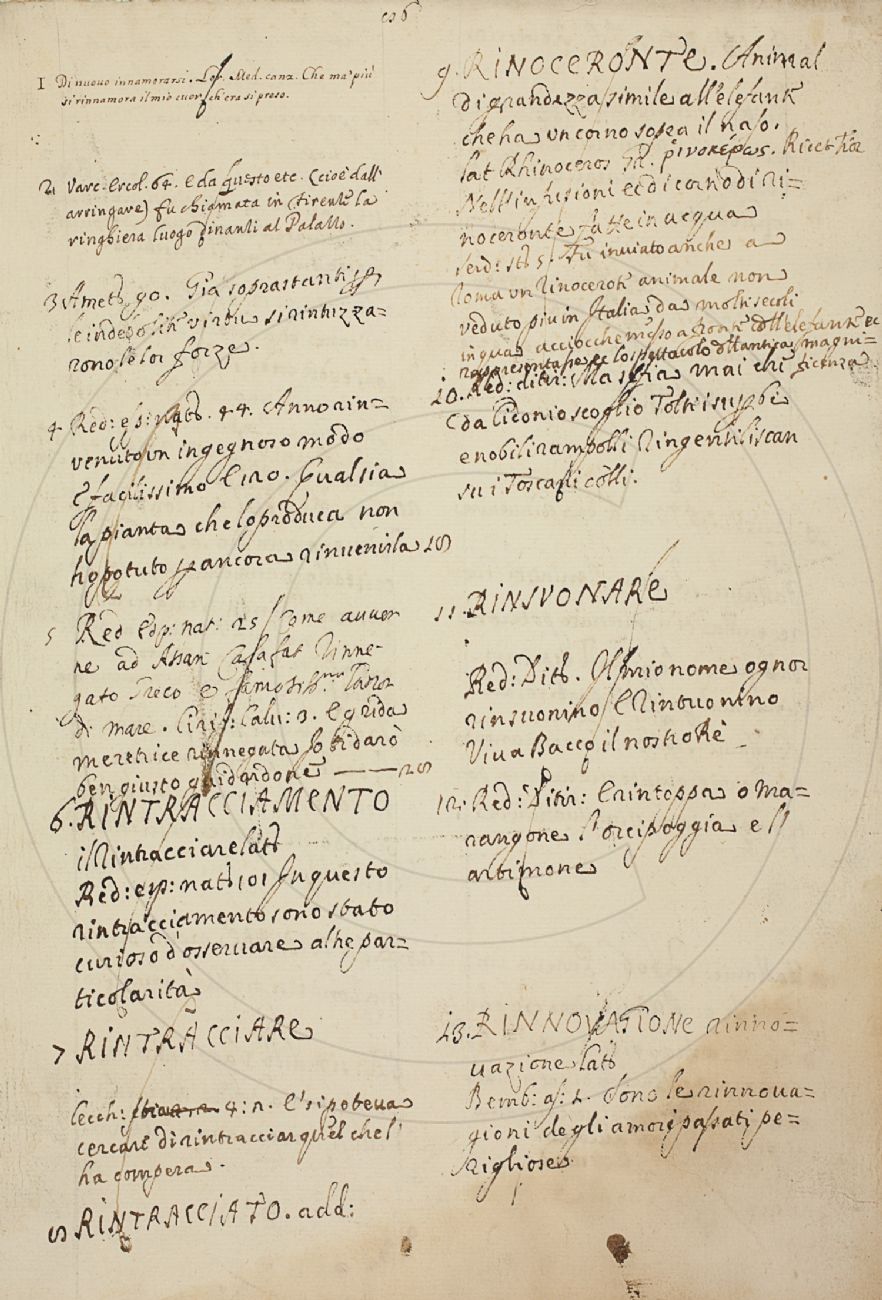 1 Di nuovo innamorarsi. Lor. Med. canz. Che ma' più
si rinnamora il mio cuor ch'era sì preso.
2 Varc. Ercol. 64. e da questo etc. (cioè dall'
arringare) fu chiamata in Firenze la
ringhiera luogo dinanzi al Palazzo.
3 Amet. 90. Già soprastanti
le indebolite virtù si rinhizza=
rono le lor forze.
4 Red: esp: nat. 44. Anno rin=
venuto un ingegnoso modo
e facilissimo Qualsia
la pianta che lo produca non
ho potuto ancora rinvenirla
5 Red Esp: nat: 25 Come avven
ne ad Assan Calafat Rinne=
gato Greco e famosiss.mo
di mare. Cirif: Calu: 3. e grida
meretrice rinnegata
ben giusto guidardone
6. RINTRACCIAMENTO
il Rintracciare lat.
Red: esp: nat. 101 In questo
rintracciamento sono stato
curioso d'osservare alhe par=
ticolarità
7 RINTRACCIARE
Cecch: 4: 2. E' si poteva
cercare di rintracciar quel che l'
ha compera.
8 RINTRACCIATO. add:
9. RINOCERONTE. Animal
di grandezza simile all'elefante
che ha un corno sopra il naso.
lat Rhinoceros gr. ῥινοκέρως. Ricet. Fior
Nell'infusioni ec di corno di ri=
noceronte fatte in acqua
Serd: st. 5. Fu inviato anche a
Roma un Rinocerote animale non
veduto più in Italia da molti secoli
in qua acciocche messo a fronte coll'elefante ec
rappresentasse ec lo spettacolo dell'antica magni=
ficenza
10. Red: ditir: Ma sia mai chi
da Lidonio scoglio Tolti i superbi
e nobili rampolli Ringentiliscan
su i Toscani colli.
11. RINSVONARE
Red: Dit. Il mio nome ognor
rinsuonino E Rintuonino
Viva Bacco il nostro Rè
12. Red: Ditir: E rintoppa o ma=
rangone l'orcipoggia e l'
artimone
13. RINNOVATIONE rinno=
vazione lat.
Bemb: as: 2. Sono le rinnova=
gioni degli amori passati pe=
rigliose